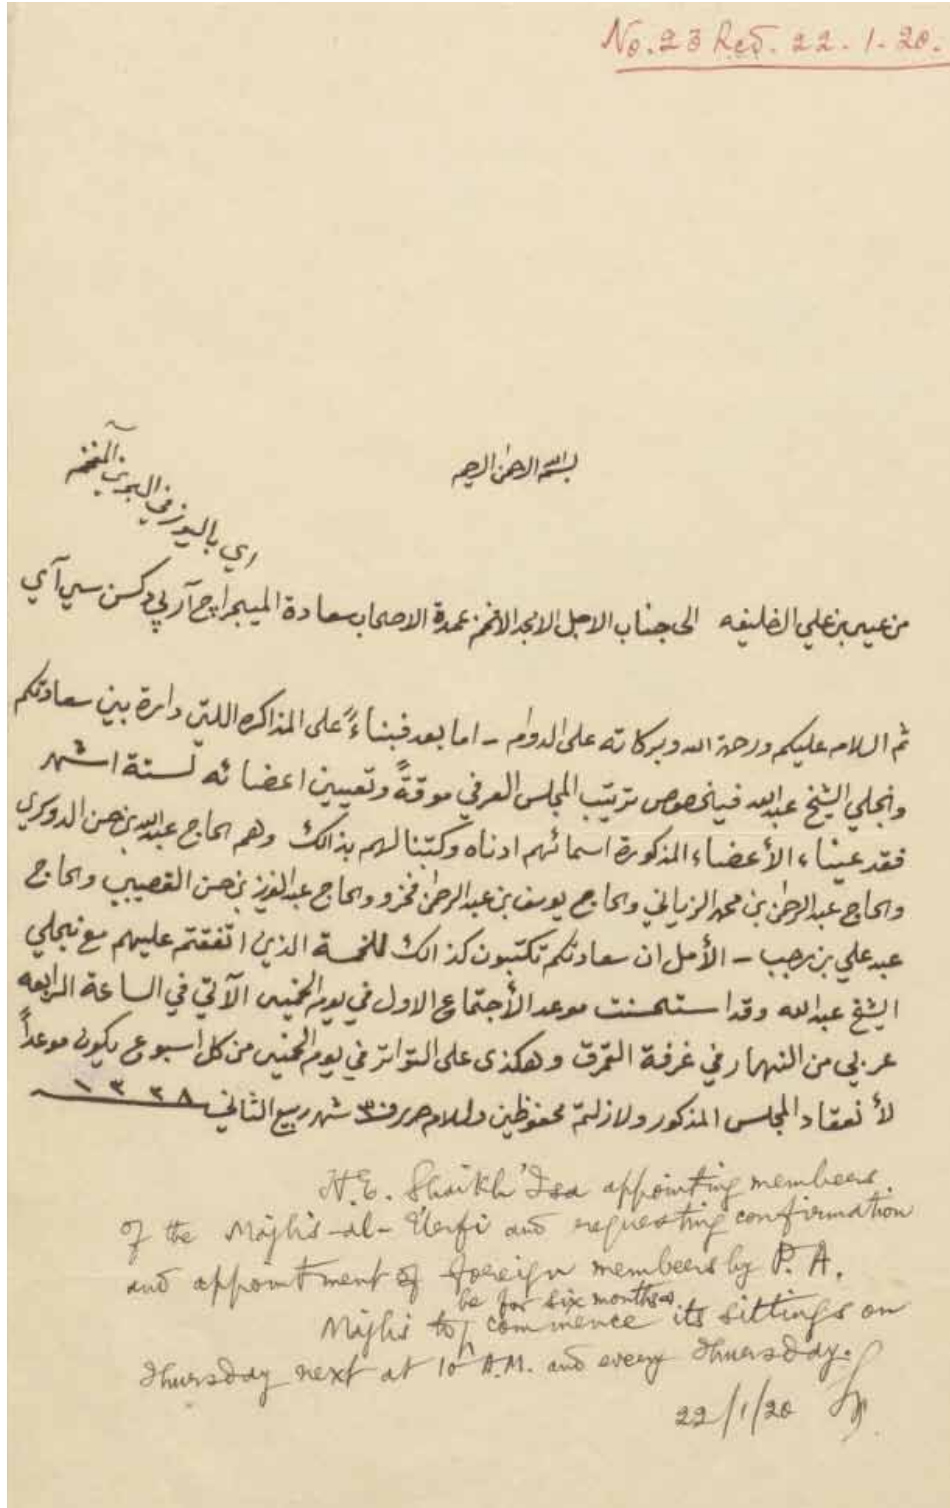 No. 23 Recd. 22. 1. 20.
بسم الله الرحمن الرحيم
من عيسى بن علي الخليفه الى جناب الاجل الامجد الافخم عمدة الاصحاب سعادة الميجر ايچ آر پي دكسن سي آي
اي باليوز في البحرين المفخم
ثم السلام عليكم ورحمة الله وبركاته على الدوام - اما بعد فبناءً على المذاكره اللتي دايرة بين سعادتكم
ونجلي الشيخ عبدالله فيخصوص ترتيب المجلس العرفي موقةً وتعيين اعضائه لستة اشهر
فقد عيناء الأعضاء المذكورة اسمائهم ادناه وكتبنا لهم بذالك وهم الحاج عبدالله بن حسن الدوكري
والحاج عبدالرحمن بن محمد الزياني والحاج يوسف بن عبدالرحمن فخرو والحاج عبدالعزيز بن حسن القصيبي والحاج
عبدعلي بن رجب - الأمل ان سعادتكم تكتبون كذالك للخمسة الذين اتفقتم عليهم مع نجلي
الشيخ عبدالله وقد استحسنت موعد الأجتماع الاول في يوم الخميس الآتي في الساعة الرابعه
عربي من النهار في غرفة القمرق وهكذى على التواتر في يوم الخميس من كل اسبوع يكون موعداً
لأنعقاد المجلس المذكور ولازلتم محفوظين والسلام حرر في ٣٠ شهر ربيع الثاني ١٣٣٨
H.E. Shaikh 'Isa appointing members
of the Majlis-al-Urfi and requesting confirmation
and appointment of foreign members by P.A.
be for six months &
Majlis to commence its sittings on
Thursday next at 10 A.M. and every Thursday.
22/1/20